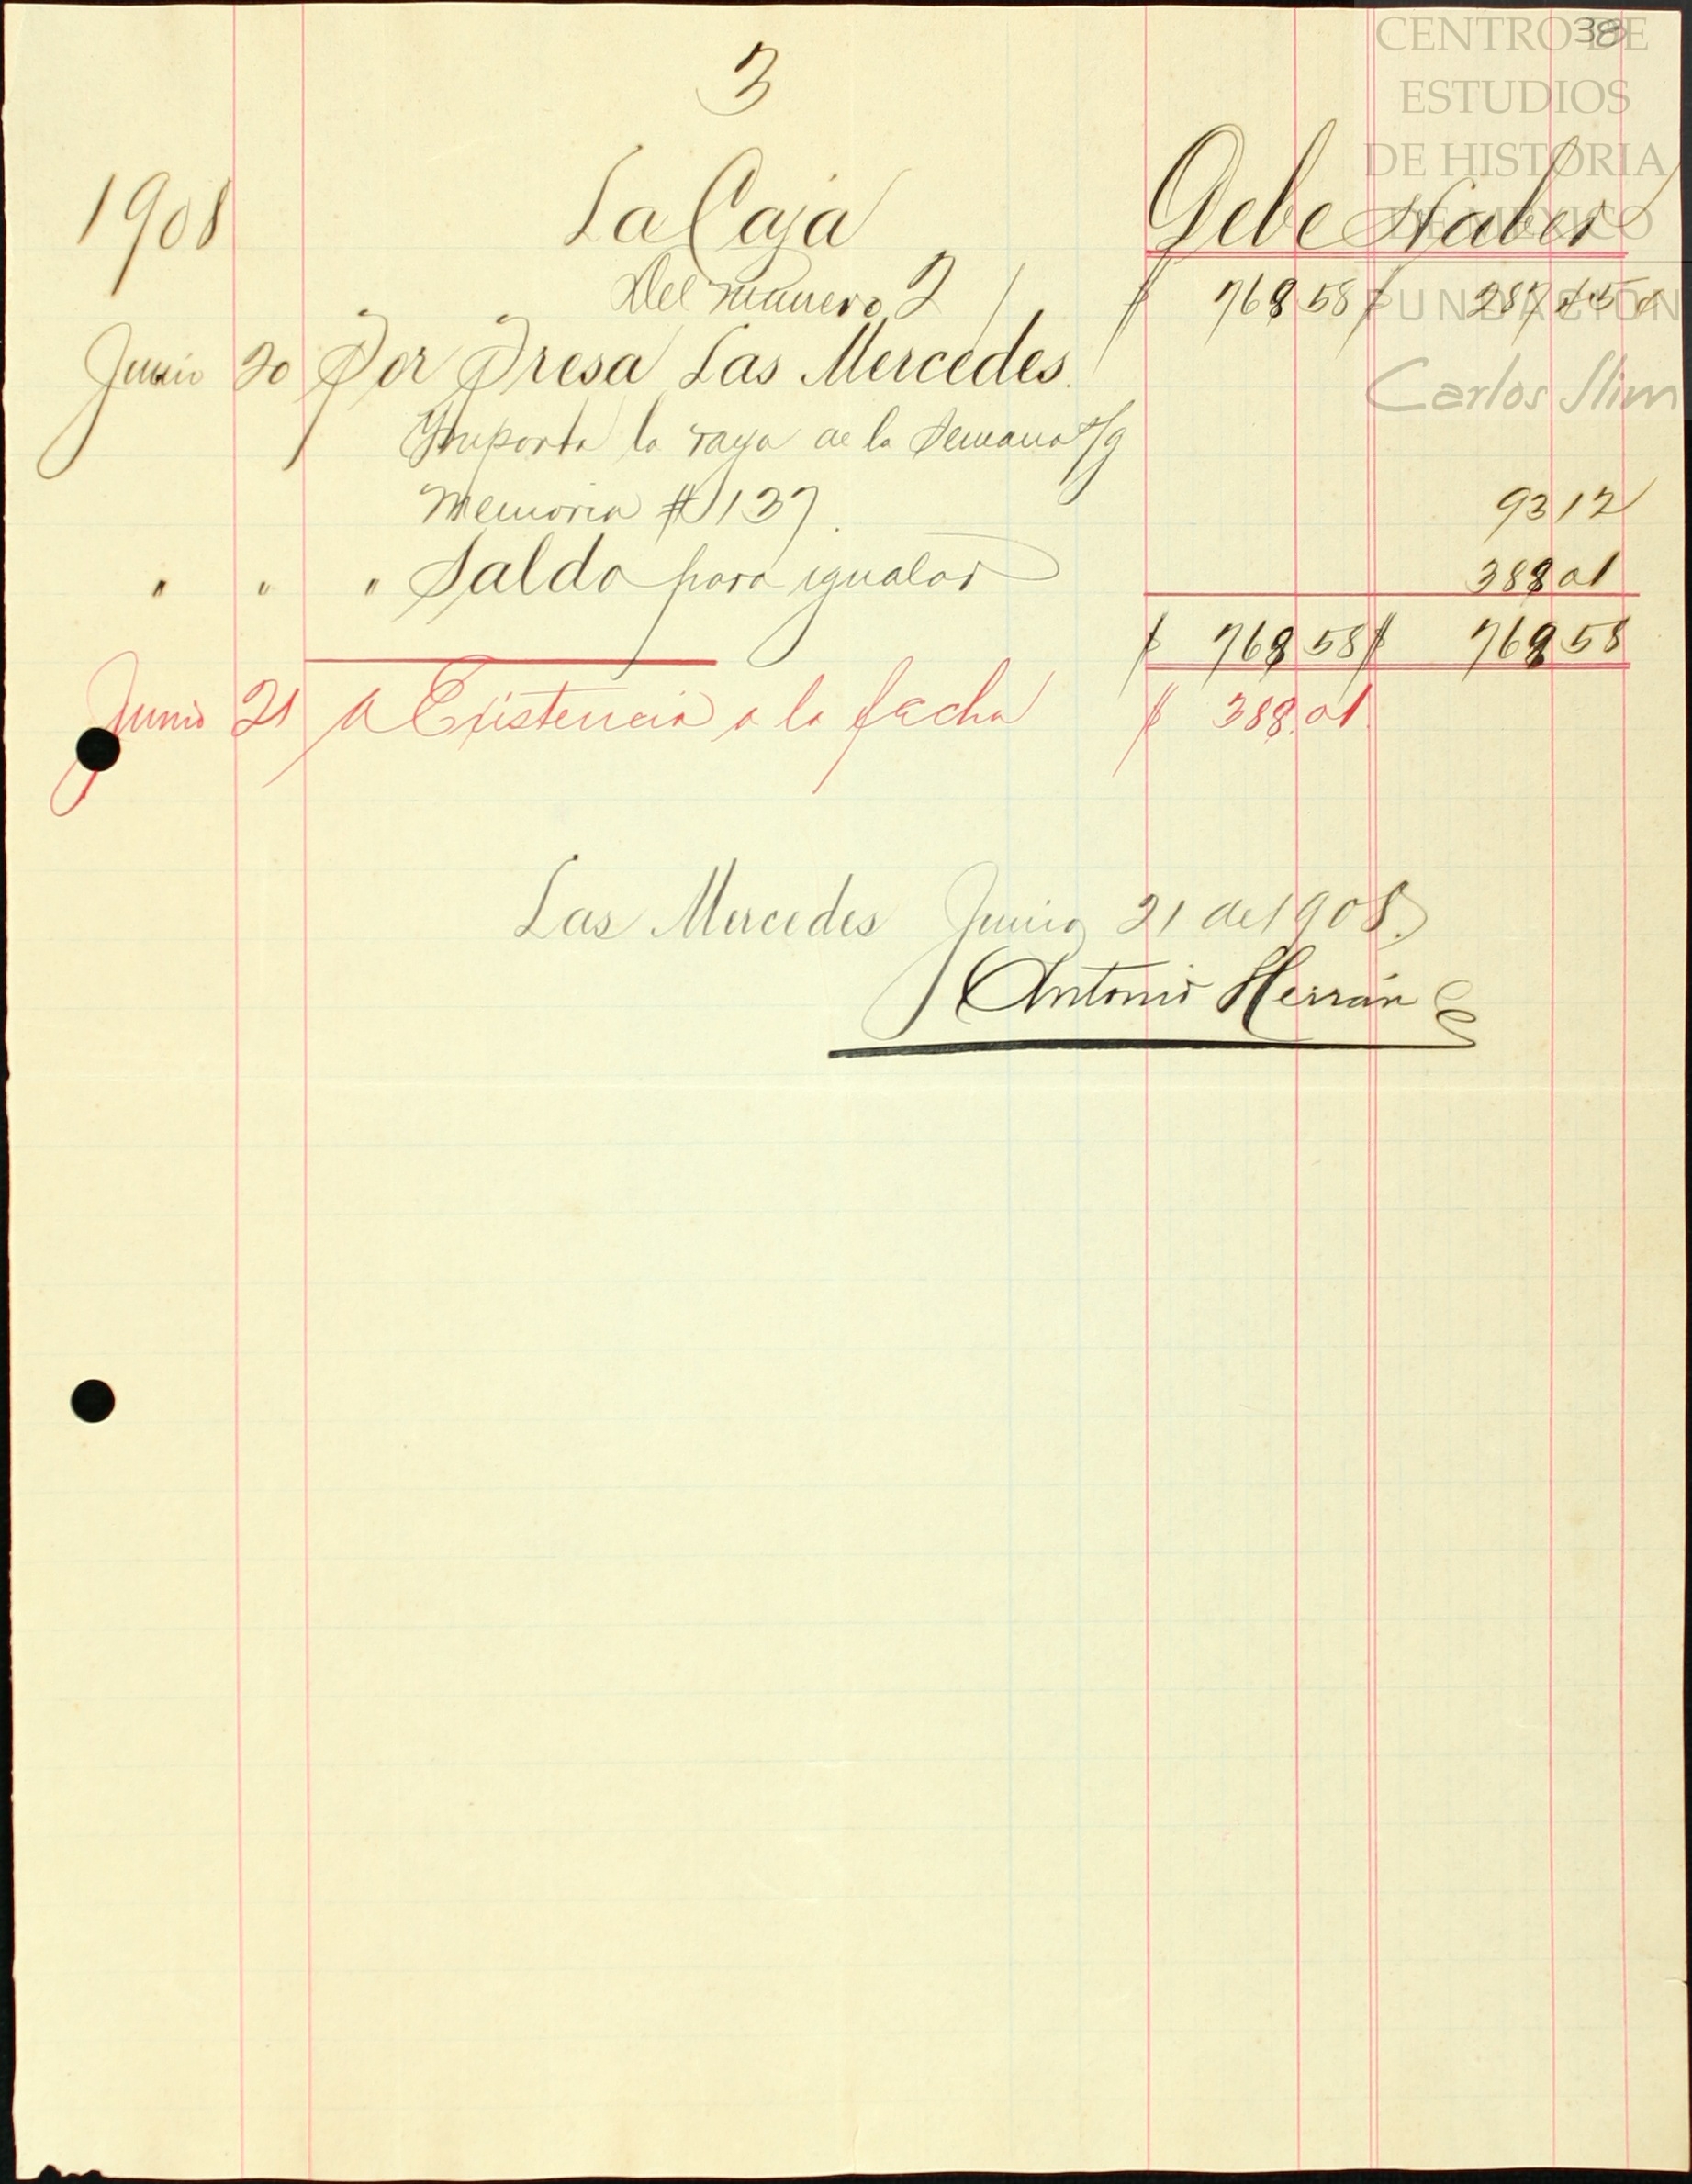 38
CENTRO DE
ESTUDIOS
DE HISTORIA
DE MEXICO
FUNDACION
Carlos Slim
3
1908 La Caja Debe Haber
Del numero 2 $ 768 58 $ 287 45
Junio 20 Por Presa Las Mercedes.
Importa la raya de la Semana s/g
Memoria # 137. 93 12
" " " Saldo para igualar 388 01
$ 768 58 $ 768 58
Junio 21 A Existencia a la fecha $ 388.01.
Las Mercedes Junio 21 de 1908.
Antonio Herrán